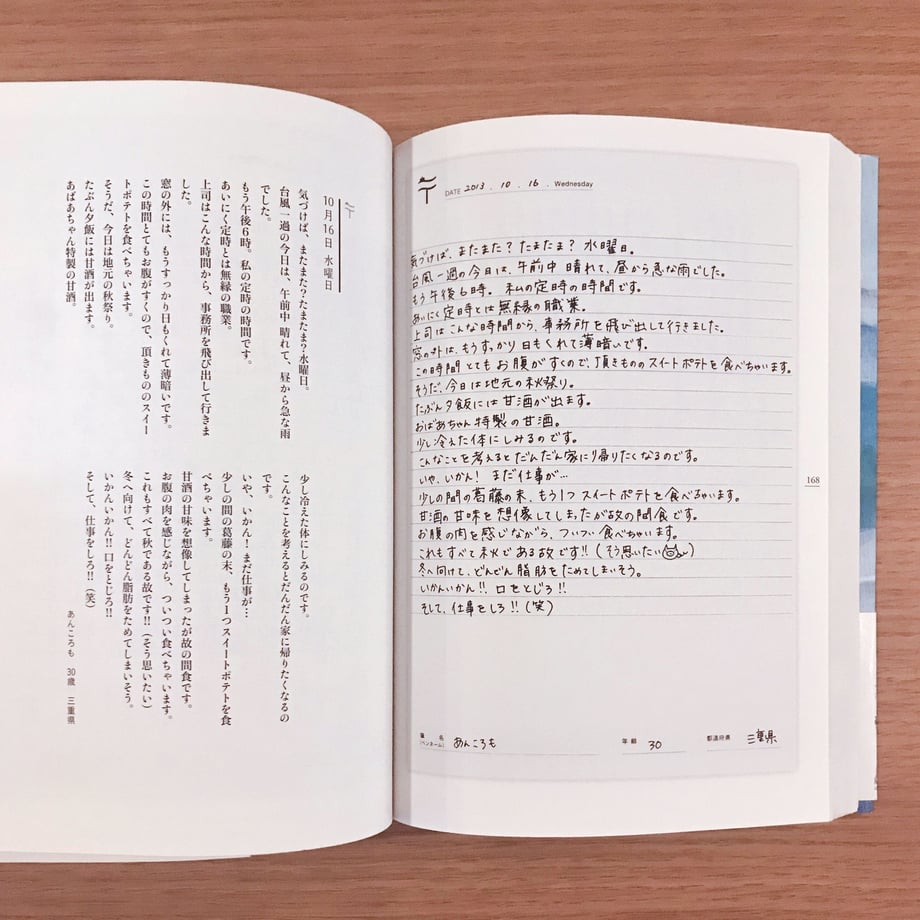 DATE 2013.10.16. Wednesday
気づけば、またまた?たまたま? 水曜日。
台風一過の今日は、午前中 晴れて、昼から急な雨でした。
もう午後6時。 私の定時の時間です。
あいにく定時とは無縁の職業。
上司はこんな時間から、事務所を飛び出して行きました。
窓の外は、もうすっかり日もくれて薄暗いです。
この時間とてもお腹がすくので、頂きもののスイートポテトを食べちゃいます。
そうだ、今日は地元の秋祭り。
たぶん夕飯には甘酒が出ます。
おばあちゃん特製の甘酒。
少し冷えた体にしみるのです。
こんなことを考えるとだんだん家に帰りたくなるのです。
いや、いかん! まだ仕事が…
少しの間の葛藤の末、もう1つスイートポテトを食べちゃいます。
甘酒の甘味を想像してしまったが故の間食です。
お腹の肉を感じながら、ついつい食べちゃいます。
これもすべて秋である故です!!(そう思いたい)
冬へ向けて、どんどん脂肪をためてしまいそう。
いかんいかん!! 口をとじろ!!
そして、仕事をしろ!!(笑)
筆 名 (ペンネーム) あんころも
年 齢 30
都道府県 三重県
168
10月16日 水曜日
気づけば、またまた?たまたま?水曜日。
台風一過の今日は、午前中 晴れて、昼から急な雨
でした。
もう午後6時。私の定時の時間です。
あいにく定時とは無縁の職業。
上司はこんな時間から、事務所を飛び出して行きま
した。
窓の外には、もうすっかり日もくれて薄暗いです。
この時間とてもお腹がすくので、頂きもののスイー
トポテトを食べちゃいます。
そうだ、今日は地元の秋祭り。
たぶん夕飯には甘酒が出ます。
あばあちゃん特製の甘酒。
少し冷えた体にしみるのです。
こんなことを考えるとだんだん家に帰りたくなるの
です。
いや、いかん!まだ仕事が…
少しの間の葛藤の末、もう1つスイートポテトを食
べちゃいます。
甘酒の甘味を想像してしまったが故の間食です。
お腹の肉を感じながら、ついつい食べちゃいます。
これもすべて秋である故です!!(そう思いたい)
冬へ向けて、どんどん脂肪をためてしまいそう。
いかんいかん!! 口をとじろ!!
そして、仕事をしろ!!(笑)
あんころも 30歳 三重県